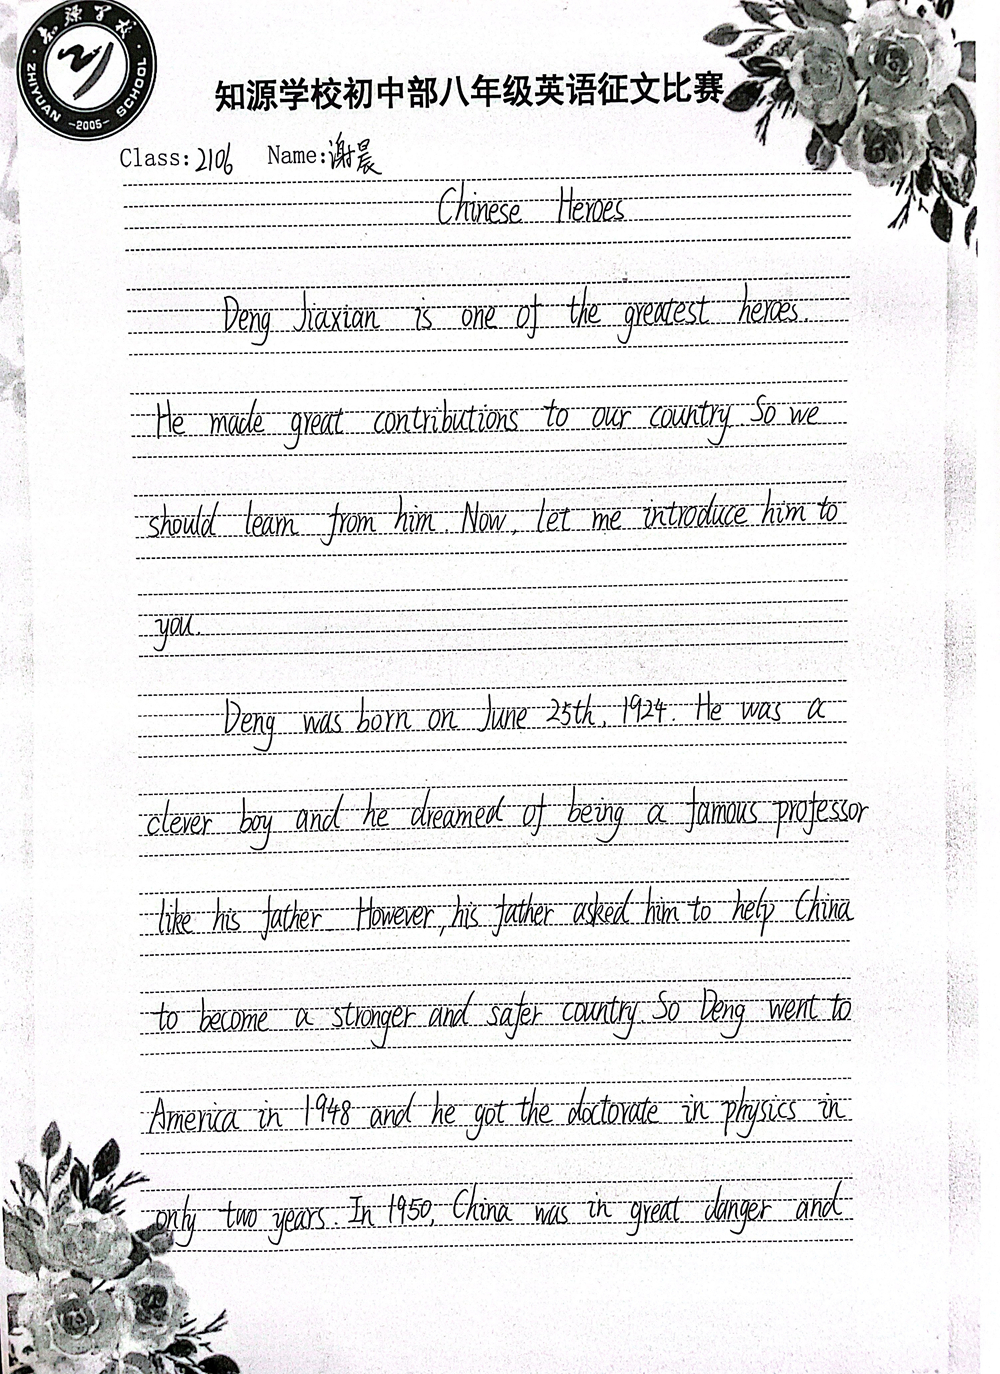 知源学校
ZHIYUAN SCHOOL
-2005-
知源学校初中部八年级英语征文比赛
Class:2106 Name:谢晨
Chinese Heroes
Deng Jiaxian is one of the greatest heroes.
He made great contributions to our country. So we
should learn from him. Now, let me introduce him to
you.
Deng was born on June 25th, 1924. He was a
clever boy and he dreamed of being a famous professor
like his father. However, his father asked him to help China
to become a stronger and safer country. So Deng went to
America in 1948 and he got the doctorate in physics in
only two years. In 1950, China was in great danger and